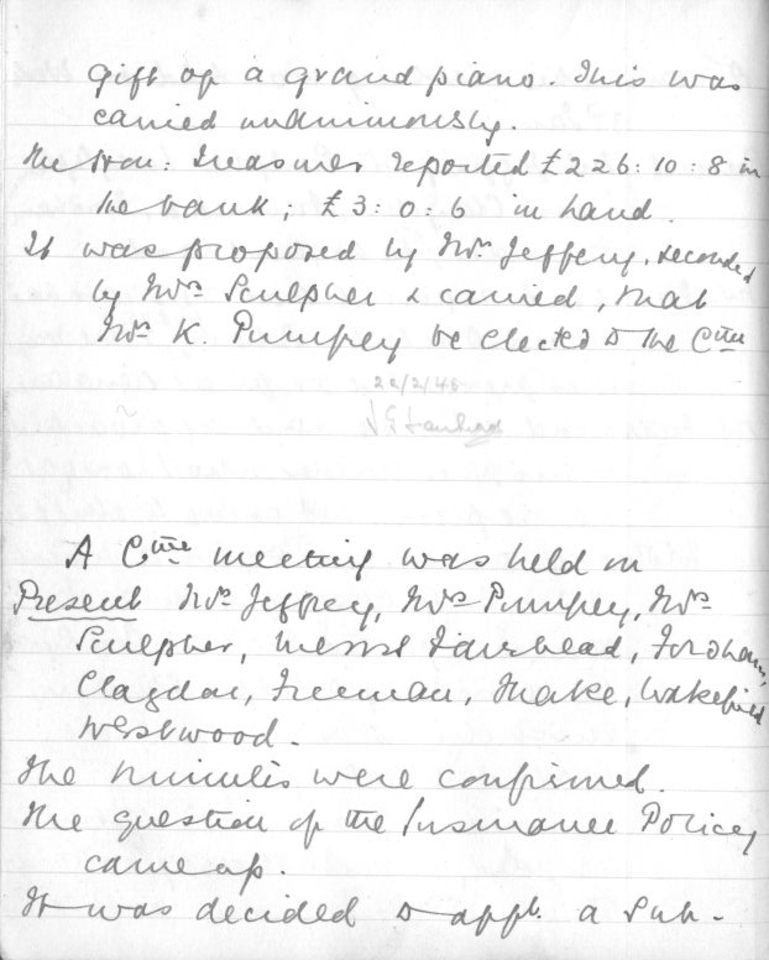 gift of a grand piano. This was
carried unanimously.
The Hon: Treasurer reported £226:10:8 in
the bank; £3:0:6 in hand.
It was proposed by Mrs Jeffery, seconded
by Mrs Sculpher & carried, that
Mrs K. Pumfrey be elected to the Cttee
A Cttee meeting was held on
Present Mrs Jeffrey, Mrs Pumfrey, Mrs
Sculpher, Messrs Fairhead, Fordham,
Clagdar, Freeman, Thake, Wakefield
Westwood.
The minutes were confirmed.
The question of the Insurance Policy
came up.
It was decided to appt. a Sub-